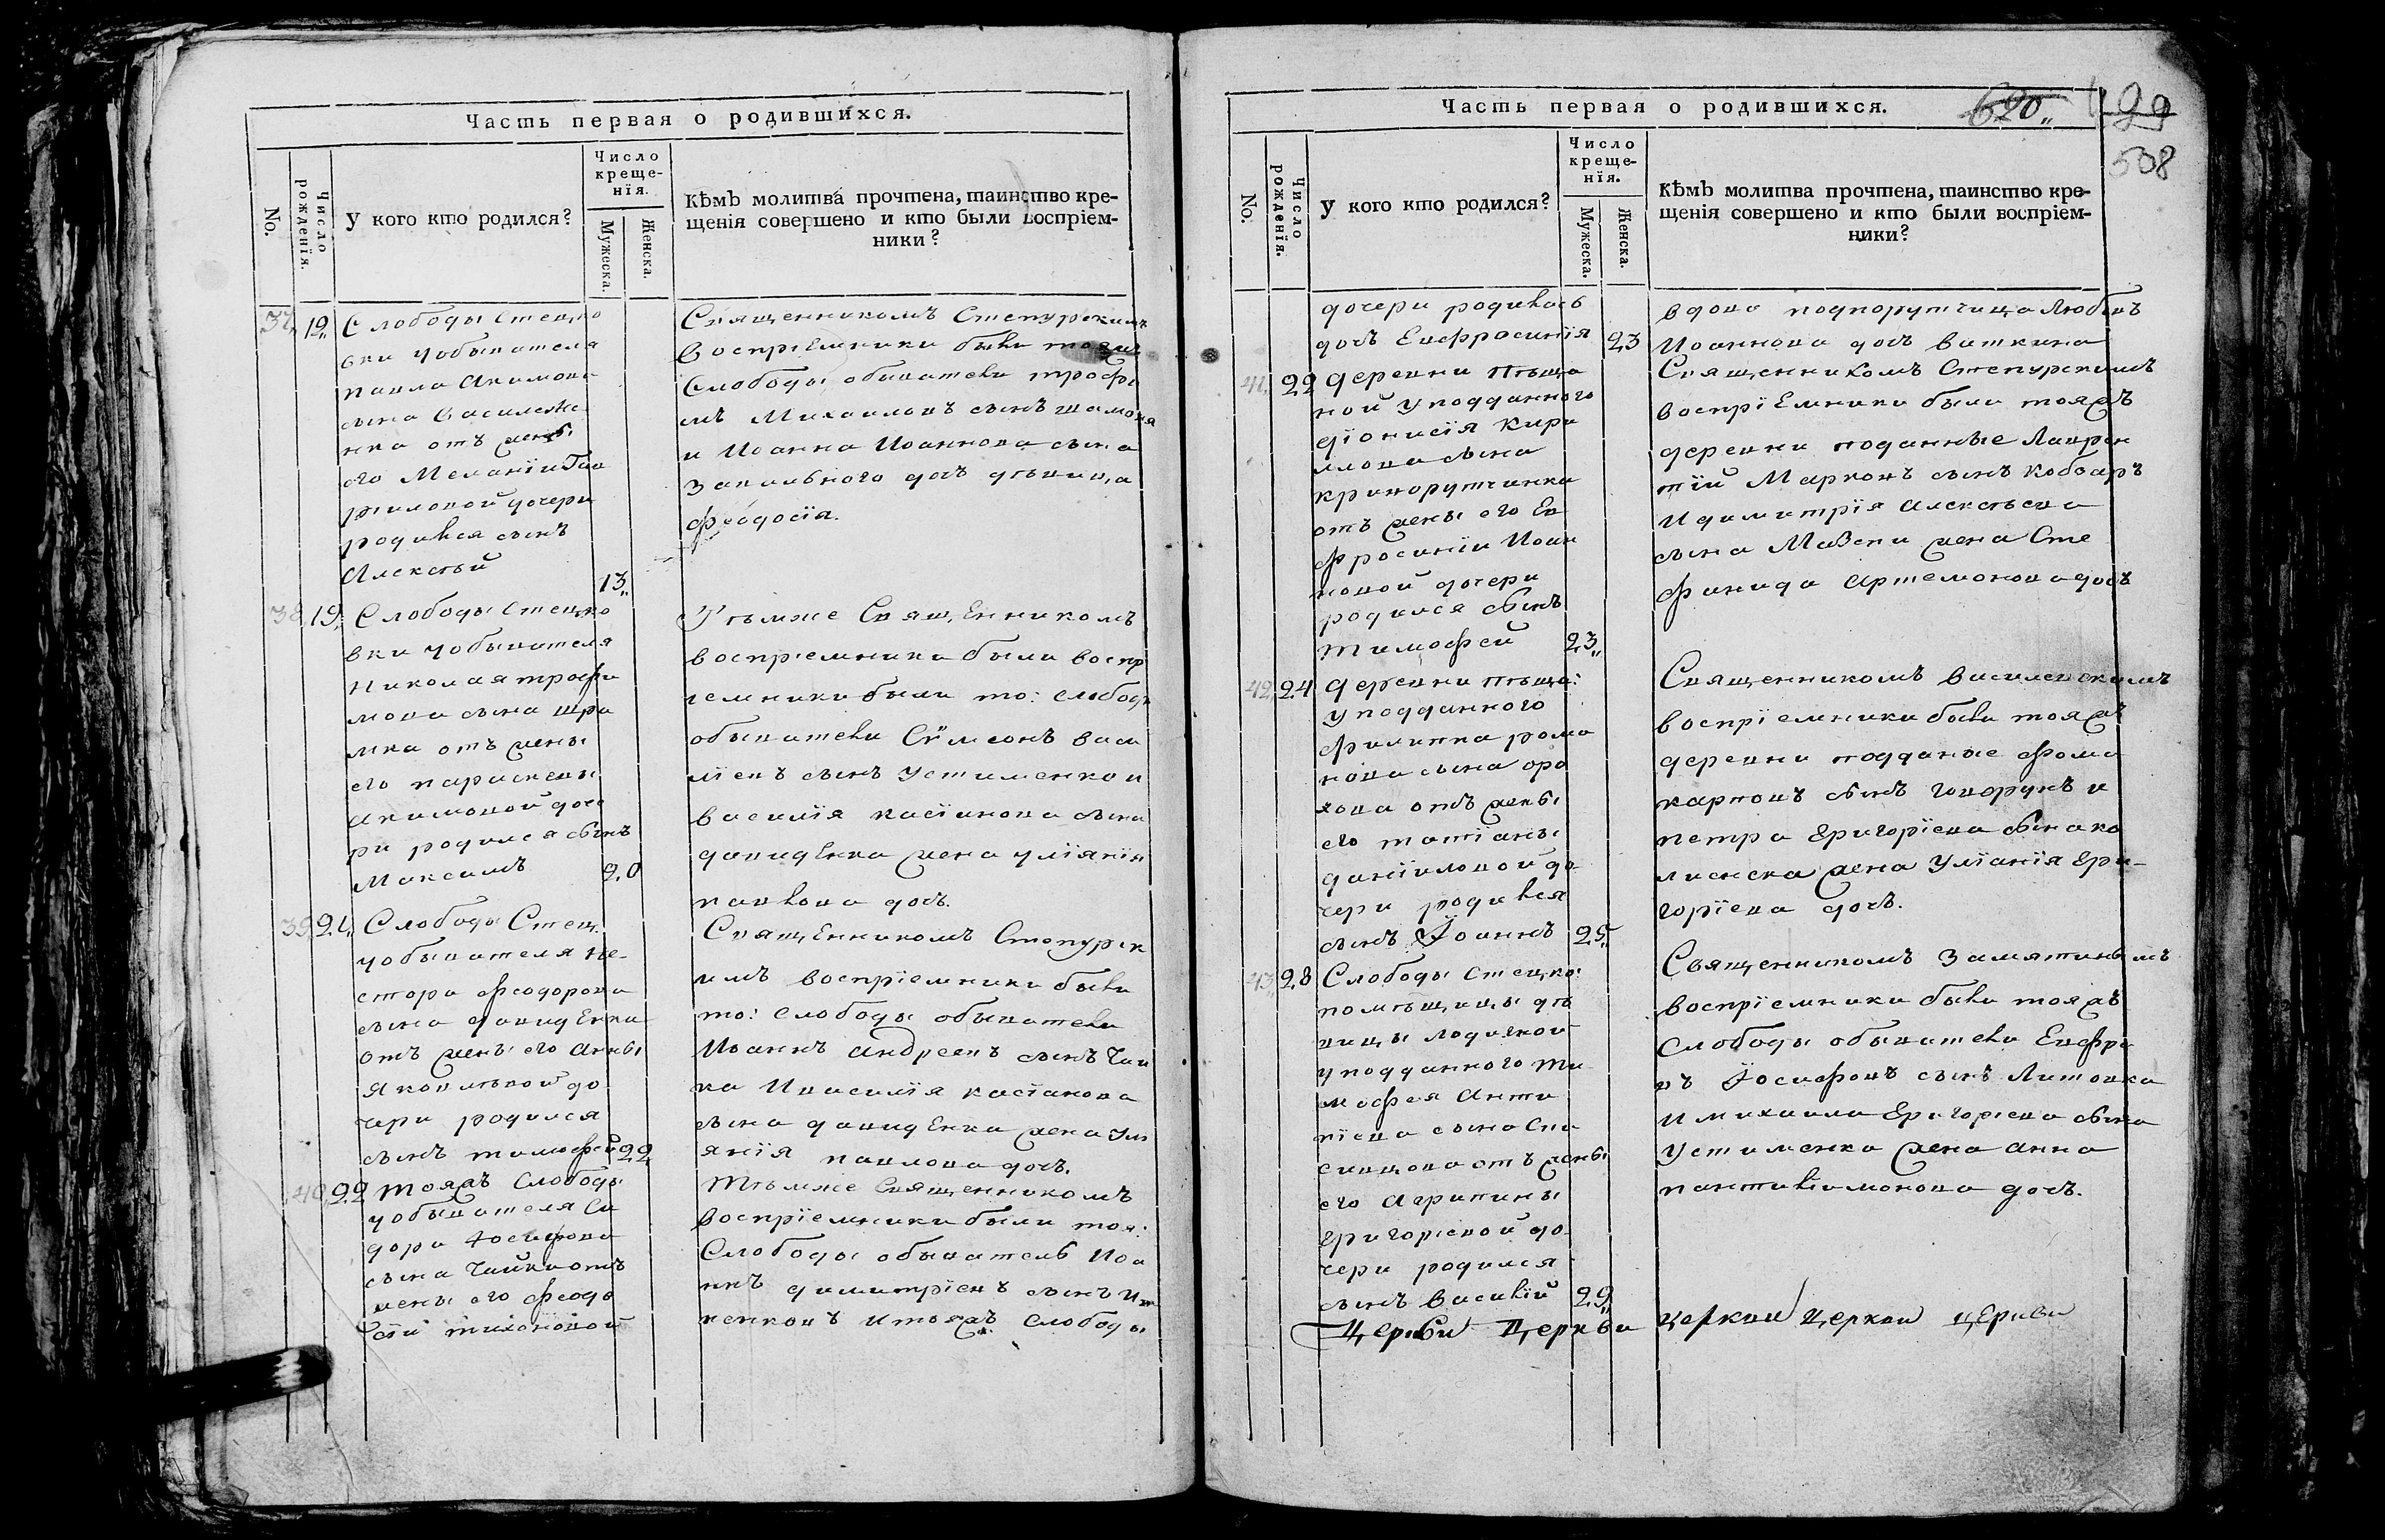 Часть первая о родившихся.
No.
Число рожденїя.
У кого кто родился?
Число креще-
нїя.
Мужеска.
Женска.
Кѣмъ молитва прочтена, таинство кре-
щенія совершено и кто были воспріем-
ники?
37. 12. Слободы Стецко
вки уобывателя
павла Акимова
сына Василеже
нка отъ жены
его Меланіи Гав
риловой дочери
родився сынъ
Алексѣй 13.
Священникомъ Степурскимъ
Воспріемники были тояжъ
Слободы обыватели трофи
мъ Михаиловъ сынъ
и Иоанна Иоаннова сына
дочь дѣвица
феодосїя.
38. 19. Слободы Стецко
вки уобывателя
Николая трофи
мова сына шра
мка отъ жены
его параскевы
Акимовой доче
ри родился сынъ
Максимъ 20
Тѣмже Священникомъ
воспріемники были воспр
іемники были то: слободы
обыватели Сѷмеонъ васи
лїевъ сынъ Устименко и
василїя касїанова сына
давидЕнка жена улїянїя
павлова дочь.
39. 21. Слободы Стец.
уобывателя не-
стора феодорова
сына давидЕнка
отъ жены его Анны
Яковлѣвой до
чери родился
сынъ тимофей 22
СвящЕнникомъ Степурск
имъ воспрїемники были
то: слободы обыватели
Иоаннъ Андреевъ сынъ Чай
ка И василїя касїанова
сына давидЕнка жена Ули
янїя павлова дочь.
40. 22 тояжъ Слободы
уобывателя Си
дора Іосифова
сына Чайки отъ
жены его феодо
сїи тихоновой
Тѣмже Священникомъ
воспрїемники были тоя:
Слободы обыватель Иоа
ннъ димитрїевъ сынъ
и тояжъ слободы
Часть первая о родившихся.
620
499
508
No.
Число рожденїя.
У кого кто родился?
Число креще-
нїя.
Мужеска.
Женска.
Кѣмъ молитва прочтена, таинство кре-
щенія совершено и кто были воспріем-
ники?
дочери родилась
дочь Евфросинїя 23
вдова подпорутчица Любовъ
Иоаннова дочь
41. 22 деревни Пѣща
ной уподданного
дїонисїя Кири
ллова сына
криворутченка
отъ жены его Ев
фросинїи Иоан
новой дочери
родился сынъ
тимофей 23.
Священникомъ Степурскимъ
воспрїЕмники были тояжъ
деревни поданные Лаврен
тїй Марковъ сынъ кобзаръ
И димитрїя алексѣева
сына Мазки жена Сте
фанида Артемонова дочь
42. 24 деревни Пѣща:
уподданного
филиппа рома
нова сына оро
хова отъ жены
его татїаны
данїиловой до
чери родився
сынъ Їоаннъ 25.
Священникомъ василевскимъ
воспрїемники были тояжъ
деревни подданые фома
карповъ сынъ говорунъ и
петра григорїева сына ко
жена Улїанїя гри-
горїева дочь.
43. 28 Слободы Стецко:
помѣщицы дѣ
вицы
уподданного ти
мофея Анти
пїева сына
отъ жены
его Агрипины
григорїевой до
чери родился
сынъ василїй 29.
Священникомъ Замятинымъ
воспрїемники были тояжъ
Слободы обыватели Евфре
мъ Їосифовъ сынъ Литовка
И михаила григорїева сына
Устименка жена анна
пантилимонова дочь.
Церкви Церкви церкви церкви церкви